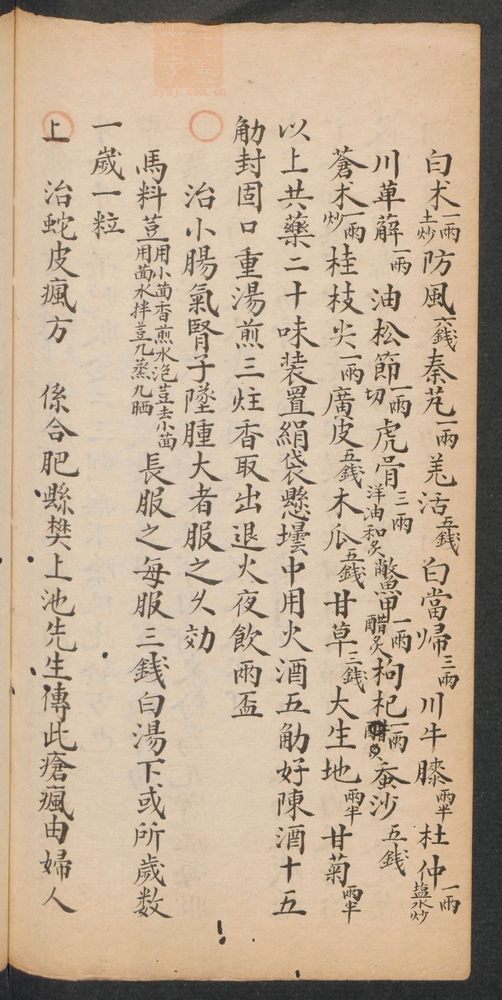 白术一兩土炒防風六錢秦艽一兩羌活五錢白當歸三兩川牛膝兩半杜仲一兩塩水炒
川萆薢一兩油松節一兩切虎骨三兩洋油和炙鱉甲一兩醋炙枸杞一兩蚕沙五錢
蒼术一兩炒桂枝尖一兩廣皮五錢木瓜五錢甘草三錢大生地兩半甘菊兩半
以上共藥二十味装置絹袋懸壜中用火酒五觔好陳酒十五
觔封固口重湯煎三炷香取出退火夜飲兩盃
治小腸氣腎子墜腫大者服之久効
馬料荳用小茴香煎水泡荳去小茴用茴水拌荳九蒸九晒長服之每服三錢白湯下或所歲数
一歲一粒
上 治蛇皮瘋方 係合肥縣樊上池先生傳此瘡瘋由婦人